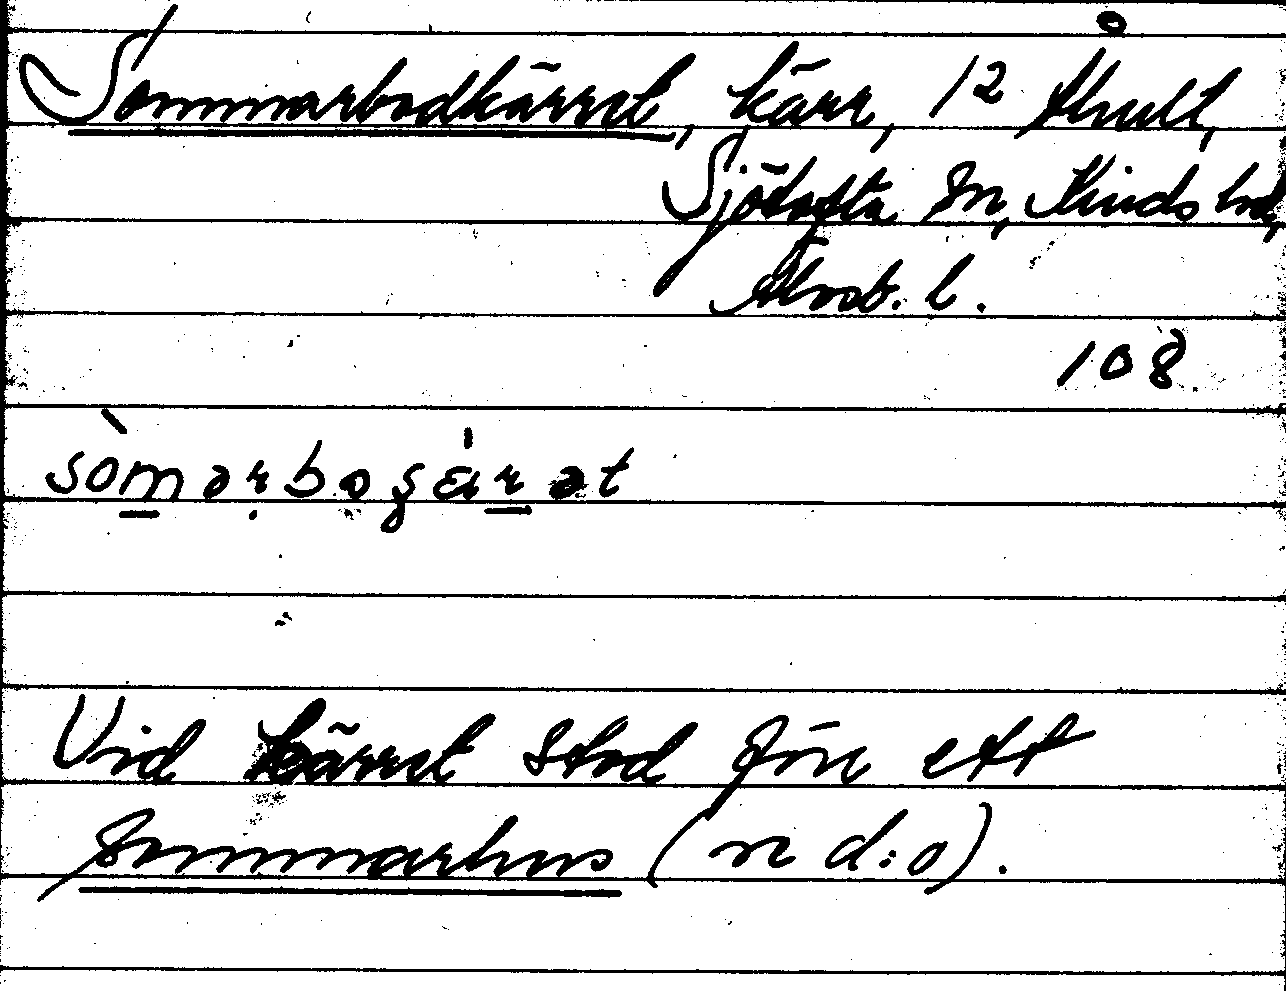 Sommarbodkärret, kärr, 12 Åhult,
Sjötofta sn, Kinds hd,
Älvsb. l.
108.
sòmərboʂɛ́rət
Vid kärret stod förr ett
sommarhus (se d:o).